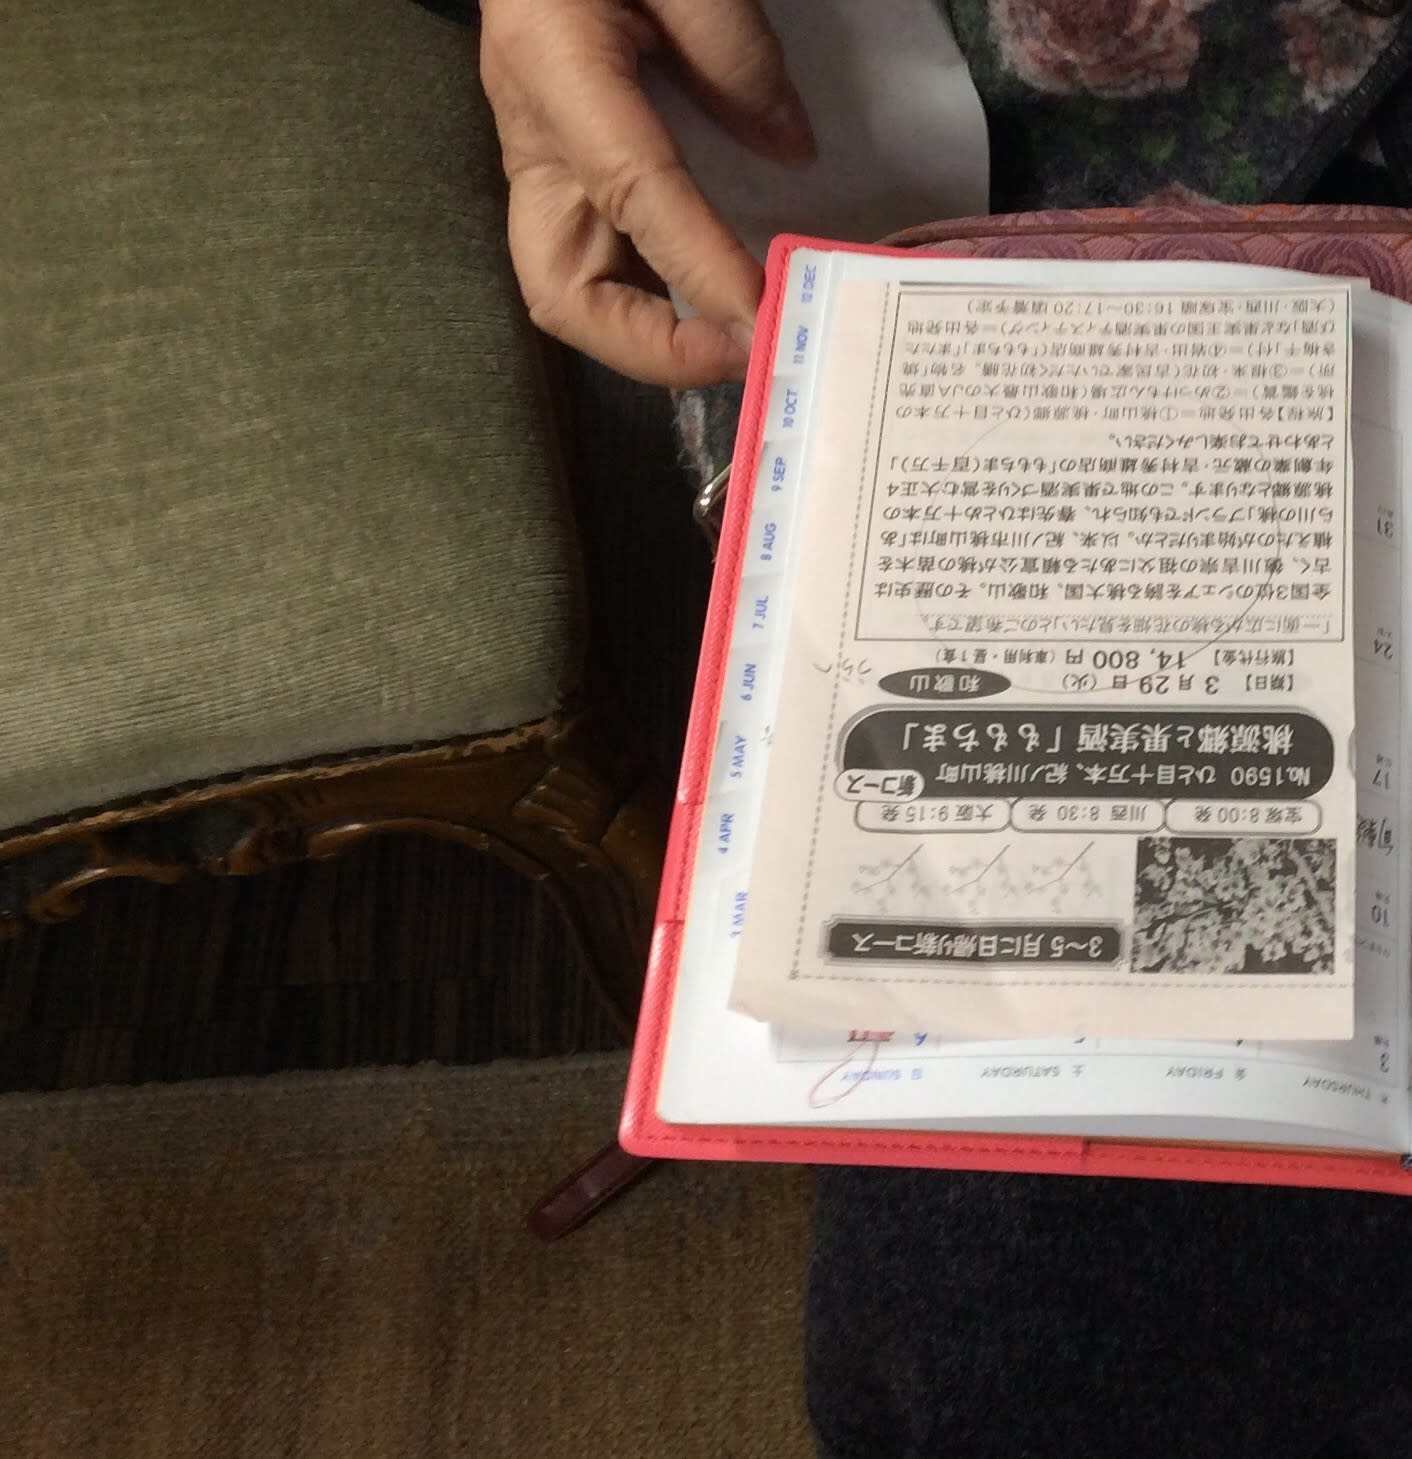 3～5月に日帰り新コース
宝塚8:00発
川西8:30発
大阪9:15発
No.1590 ひと目十万本、紀ノ川桃山町
新コース
桃源郷と果実酒「ももちま」
【期日】 3月29日(火)
和歌山
【旅行代金】 14,800円(車利用・昼1食)
「一面に広がる桃の花畑を見たい」とのご希望です。
全国3位のシェアを誇る桃大国、和歌山。その歴史は
古く、徳川吉宗の祖父にあたる頼宣公が桃の苗木を
植えたのが始まりだとか。以来、紀ノ川市桃山町は「あ
ら川の桃」ブランドでも知られ、春先はひとめ十万本の
桃源郷となります。この地で果実酒づくりを営む大正4
年創業の蔵元・吉村秀雄商店の「ももちま(百千万)」
とあわせてお楽しみください。
【旅程】各出発地=①桃山町・桃源郷(ひと目十万本の
桃を鑑賞)=②めっけもん広場(和歌山最大のJA直売
所)=③根来・初花(古民家でいただく初花膳、名物「焼
き梅干」付)=④岩出・吉村秀雄商店(「ももちま」「またた
び酒」など果実王国の果実酒テイスティング)=各出発地
(大阪・川西・宝塚順 16:30～17:20頃着予定)
3 MAR
4 APR
5 MAY
6 JUN
7 JUL
8 AUG
9 SEP
10 OCT
11 NOV
12 DEC
木 THURSDAY
金 FRIDAY
土 SATURDAY
日 SUNDAY
3
10
17
24
31